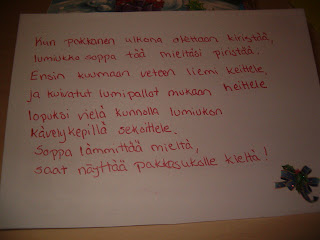 Kun pakkanen ulkona alettaan kiristää,
lumiukko soppa tää mieltäsi piristää.
Ensin kuumaan veteen liemi keittele,
ja kuivatut lumipallot mukaan heittele
lopuksi vielä kunnolla lumiukon
kävelykepillä sekoittele.
Soppa lämmittää mieltä,
saat näyttää pakkasukolle kieltä!